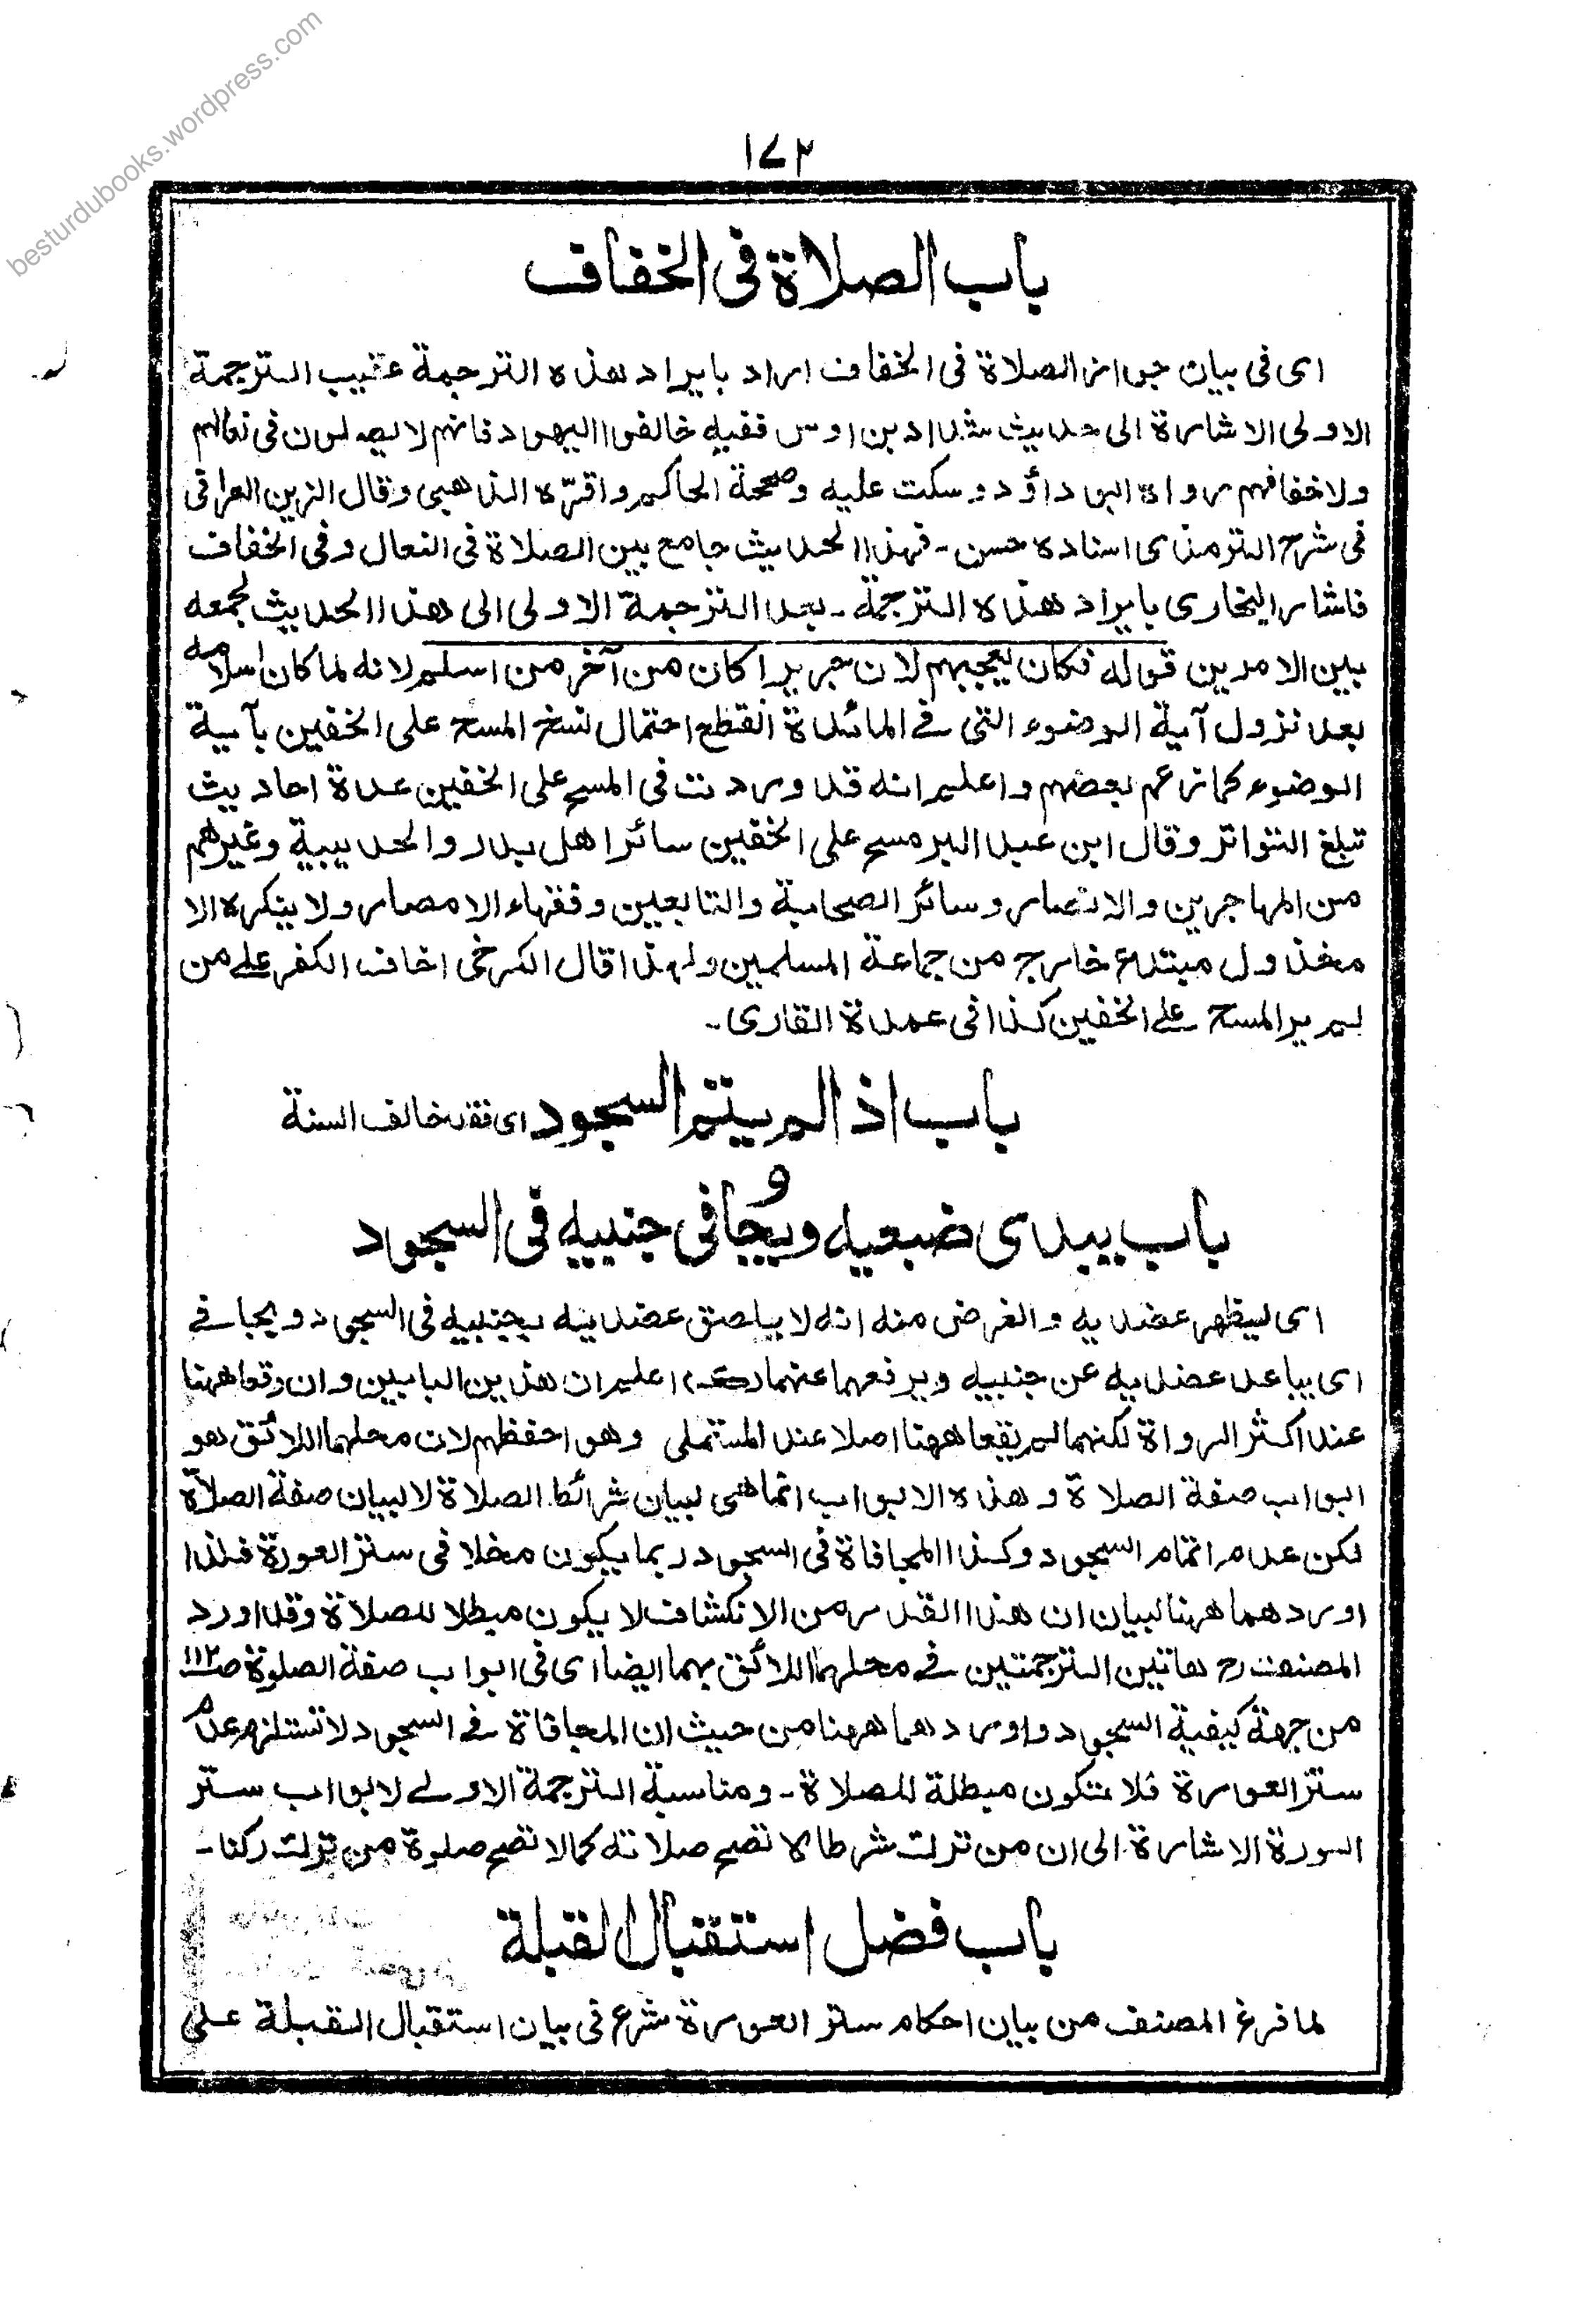 besturdubooks.wordpress.com
١٧٢
باب الصلاة فى الخفاف
اى فى بيان جواز الصلاة فى الخفاف اراد بايراد هذه الترجمة عقيب الترجمة
الاولى الاشارة الى حديث شداد بن اوس ففيه خالفوا اليهود فانهم لا يصلون فى نعالهم
ولا خفافهم رواه ابو داؤد وسكت عليه وصححه الحاكم واقرّه الذهبى وقال الزين العراقى
فى شرح الترمذى اسناده حسن - فهذا الحديث جامع بين الصلاة فى النعال وفى الخفاف
فاشار البخارى بايراد هذه الترجمة - بعد الترجمة الاولى الى هذا الحديث لجمعه
بين الامرين قوله فكان يعجبهم لان جريرا كان من آخر من اسلم لانه لما كان اسلامه
بعد نزول آية الوضوء التى فے المائدة انقطع احتمال نسخ المسح على الخفين بآية
الوضوء كما زعم بعضهم واعلم انه قد وردت فى المسح على الخفين عدة احاديث
تبلغ التواتر وقال ابن عبد البر مسح على الخفين سائر اهل بدر والحديبية وغيرهم
من المهاجرين والانصار وسائر الصحابة والتابعين وفقهاء الامصار ولا ينكره الا
مخذول مبتدع خارج من جماعة المسلمين ولهذا قال الكرخى اخاف الكفر علے من
لم ير المسح علے الخفين كذا فى عمدة القارى -
باب اذا لم يتم السجود اى فقد خالف السنة
باب يبدى ضبعيه ويُجافى جنبيه فى السجود
اى ليظهر عضديه والغرض منه انه لا يلصق عضديه بجنبيه فى السجود ويجافے
اى يباعد عضديه عن جنبيه ويرفعهما عنهما اعلم ان هذين البابين وان وقعا ههنا
عند اكثر الرواة لكنهما لم يقعا ههنا اصلا عند المستملى وهو احفظهم لان محلهما اللائق هو
ابواب صفة الصلاة وهذه الابواب انما هى لبيان شرائط الصلاة لا لبيان صفة الصلاة
لكن عدم اتمام السجود وكذا المجافاة فى السجود ربما يكون مخلا فى ستر العورة فلذا
اوردهما ههنا لبيان ان هذا القدر من الانكشاف لا يكون مبطلا للصلاة وقد اورد
المصنف رح هاتين الترجمتين فے محلهما اللائق بهما ايضا اى فى ابواب صفة الصلوة صـ١١٢
من جهة كيفية السجود واوردهما ههنا من حيث ان المجافاة فے السجود لا تستلزم عدم
ستر العورة فلا تكون مبطلة للصلاة - ومناسبة الترجمة الاولے لابواب ستر
العورة الاشارة الى ان من ترك شرطا لا تصح صلاته كما لا تصح صلوة من ترك ركنا -
باب فضل استقبال القبلة
لما فرغ المصنف من بيان احكام ستر العورة شرع فى بيان استقبال القبلة على